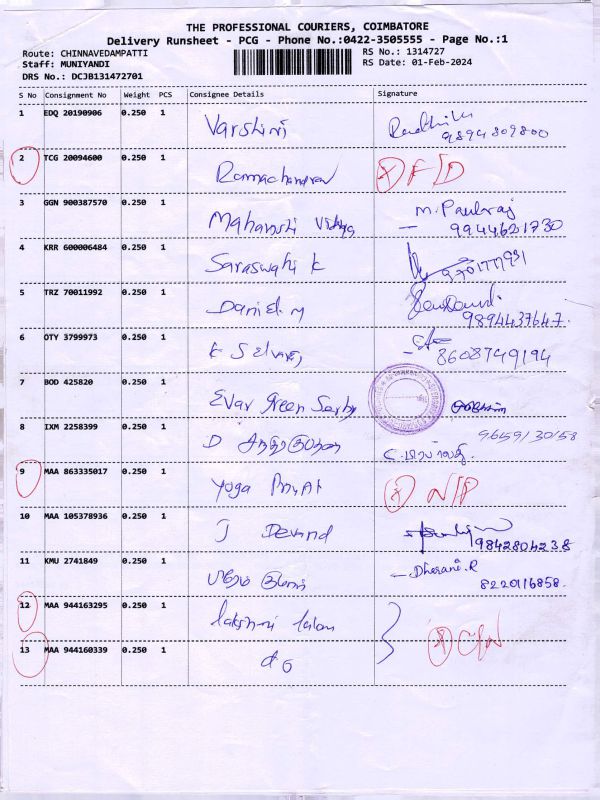 THE PROFESSIONAL COURIERS, COIMBATORE
Delivery Runsheet - PCG - Phone No.:0422-3505555 - Page No.:1
Route: CHINNAVEDAMPATTI RS No.: 1314727
Staff: MUNIYANDI RS Date: 01-Feb-2024
DRS No.: DCJB131472701
S No Consignment No Weight PCS Consignee Details Signature
1 EDQ 20190906 0.250 1 Varshini Radhika
9894809800
2 TCG 20094600 0.250 1 Ramachandran X F/D
3 GGN 900387570 0.250 1 Maharshi Vidya M. Paulraj
9944621730
4 KRR 600006484 0.250 1 Saraswathi K
5 TRZ 70011992 0.250 1 Daniel. M
9894437647.
6 OTY 3799973 0.250 1 K Selvaraj
8608749194
7 BOD 425820 0.250 1 Evar Green
8 IXM 2258399 0.250 1 D 9659130158
9 MAA 863335017 0.250 1 Yoga X N/P
10 MAA 105378936 0.250 1 J Devanad
9842804238
11 KMU 2741849 0.250 1 Dharani. R
8220116858.
12 MAA 944163295 0.250 1 Lakshmi
X C/N
13 MAA 944160339 0.250 1 do